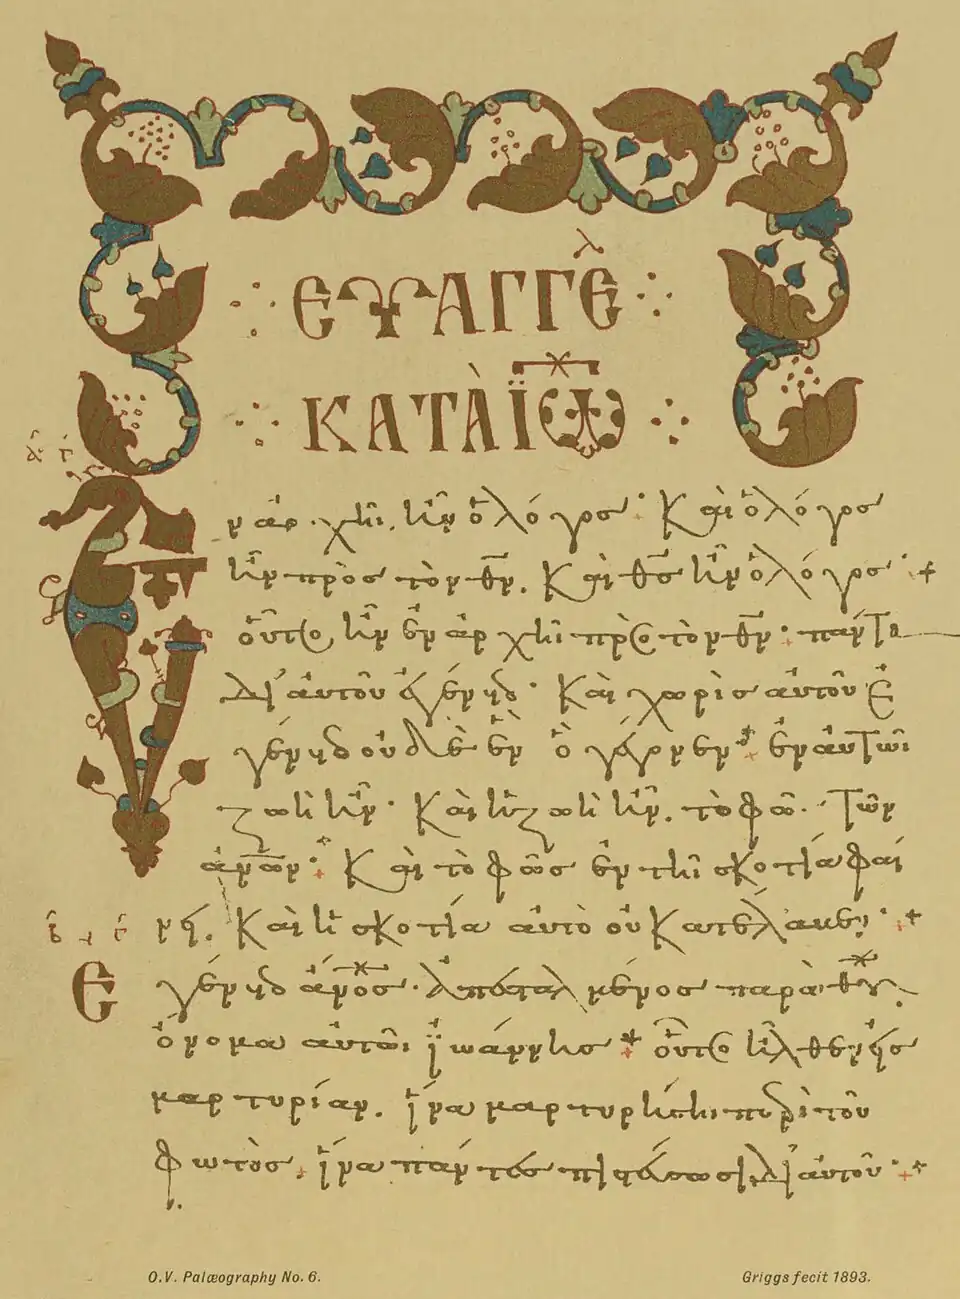 ΕΥΑΓΓΕ^λ
ΚΑΤᾺ ΪΩ
Ἐν ἀρχῆι ἦν ὁ λόγος· Καὶ ὁ λόγος
ἦν πρὸς τὸν θν. Καὶ θς ἦν ὁ λόγος·
οὗτος ἦν ἐν ἀρχῆι πρὸς τὸν θν· πάντα
δι' αὐτοῦ ἐγένετο· Καὶ χωρὶς αὐτοῦ ἐ
γένετο οὐδὲ ἓν ὃ γέγονεν· ἐν αὐτῶι
ζωὴ ἦν· Καὶ ἡ ζωὴ ἦν. τὸ φῶς τῶν
ἀνων· Καὶ τὸ φῶς ἐν τῆι σκοτία φαί
νει. Καὶ ἡ σκοτία αὐτὸ οὐ κατέλαβεν·
Εγένετο ἀνος· ἀπεσταλμένος παρὰ θυ.
ὄνομα αὐτῶι ϊωάννης· οὗτος ἦλθεν εἰς
μαρτυρίαν. ἵνα μαρτυρήσηι περὶ τοῦ
φωτὸς· ἵνα πάντες πιστεύσωσι δι' αὐτοῦ·
O.V. Palæography No. 6.
Griggs fecit 1893.